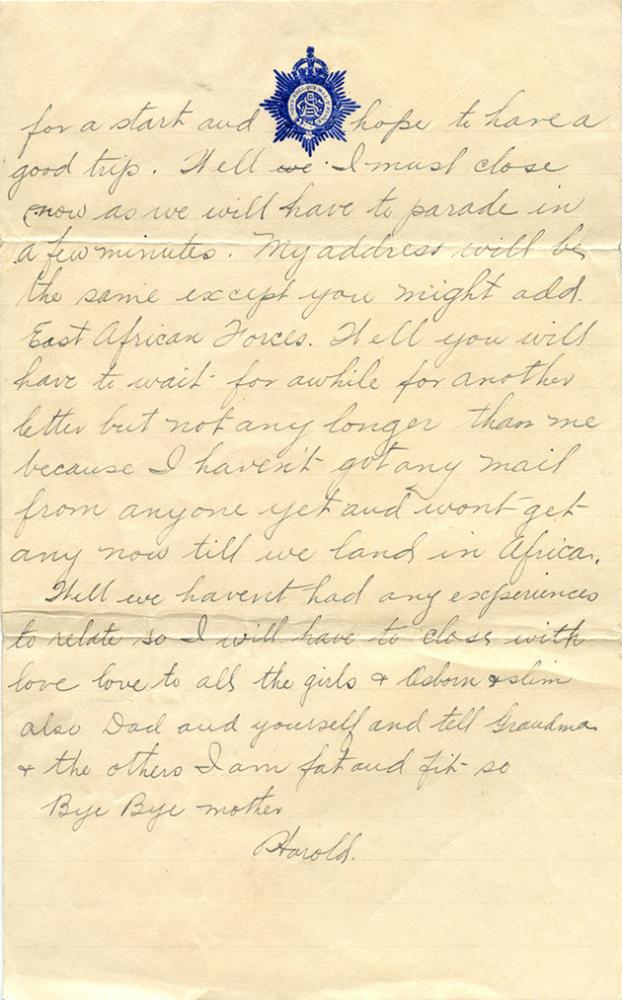 for a start and hope to have a
good trip. Well we I must close
now as we will have to parade in
a few minutes. My address will be
the same except you might add
East African Forces. Well you will
have to wait for awhile for another
letter but not any longer than me
because I haven't got any mail
from anyone yet and wont get
any now till we land in Africa.
Well we havent had any experiences
to relate so I will have to close with
love love to all the girls & Osborn & slim
also Dad and yourself and tell Grandma
& the others I am fat and fit so
Bye Bye mother
Harold.